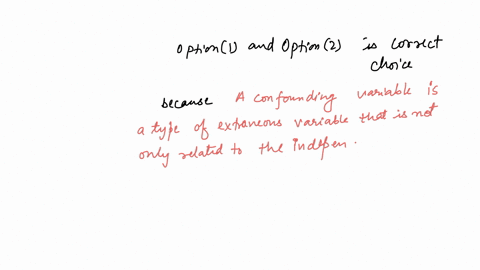 option(1) and option(2) is correct
choice
because A confounding variable is
a type of extraneous variable that is not
only related to the indepen.